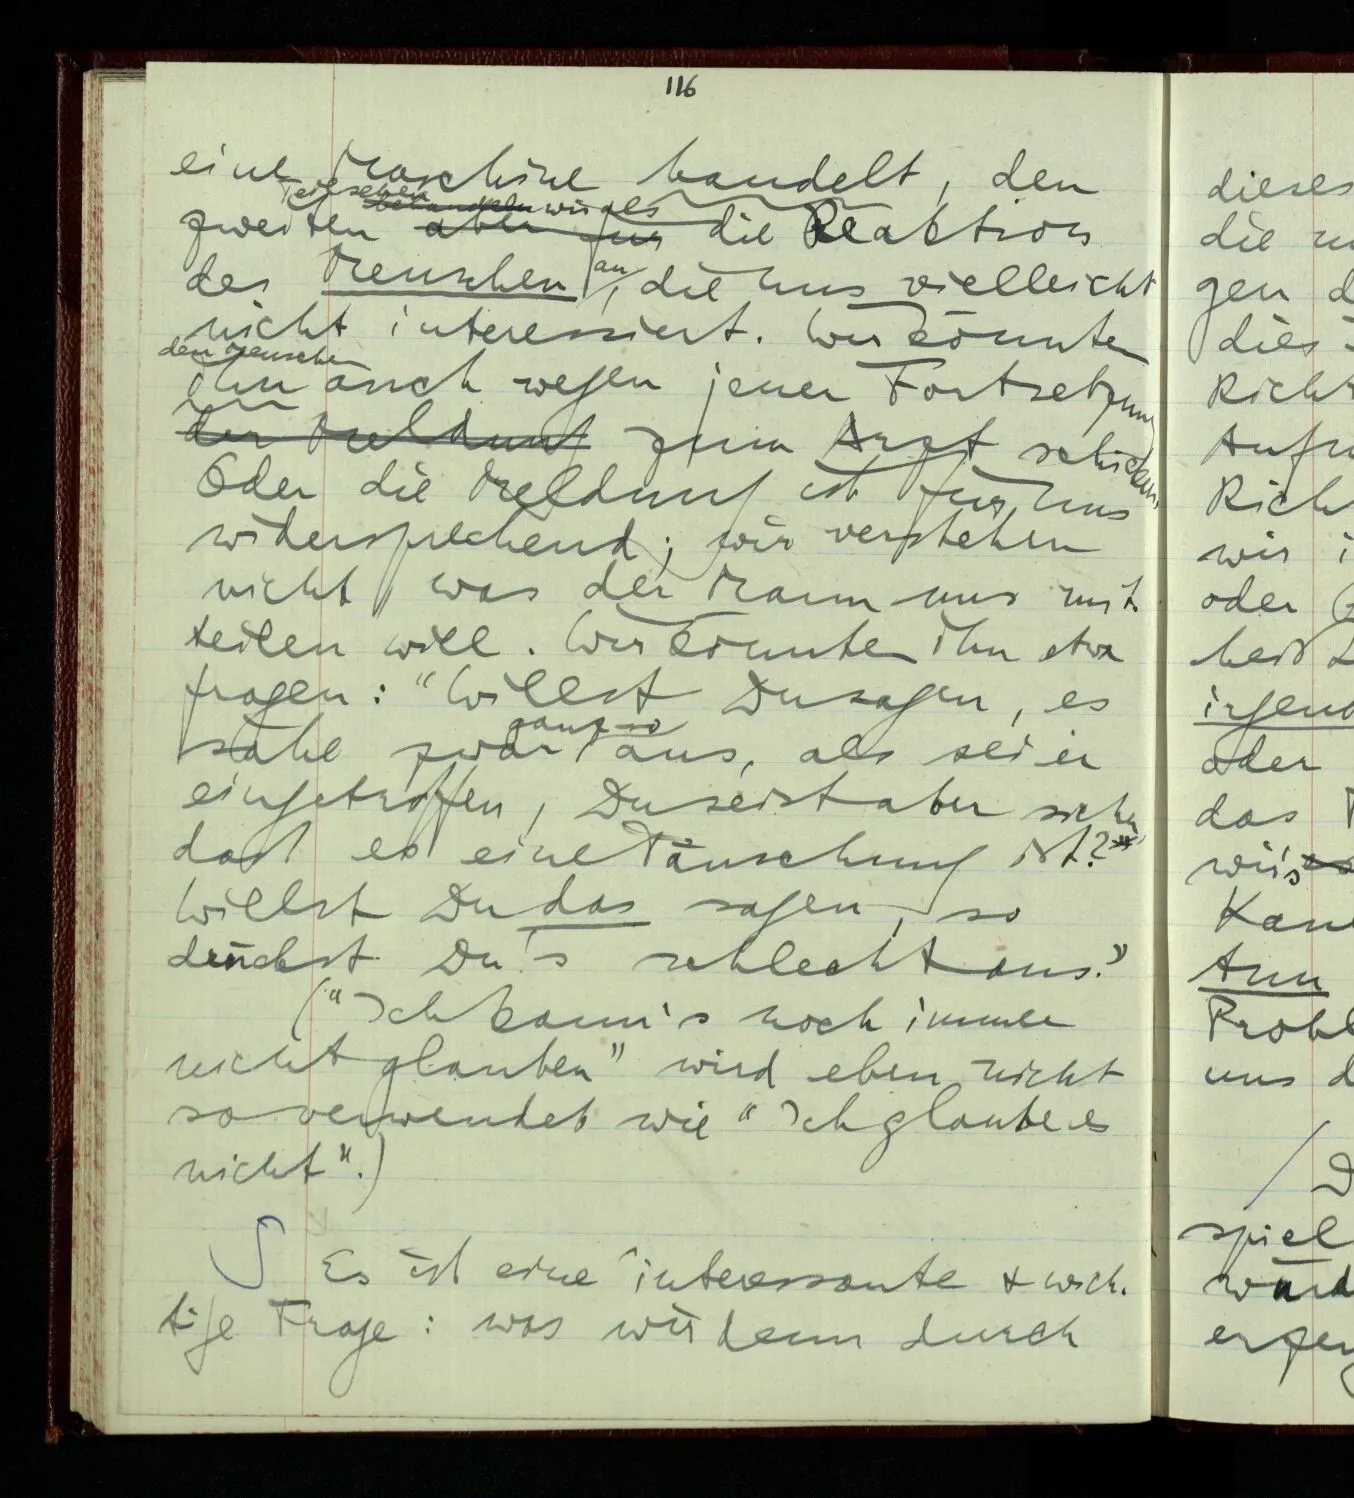 116
eine Maschine handelt, den
Teil sehen behandeln wir als
zweiten aber für die Reaktion
des Menschen an, die uns vielleicht
nicht interessiert. Wir könnten
den Menschen
ihn auch wegen jener Fortsetzung
der Meldung zum Arzt schicken.
Oder die Meldung ist für uns
widersprechend; wir verstehen
nicht was der Mann uns mit-
teilen will. Wir könnten ihn etwa
fragen: "Willst Du sagen, es
ganz so
sähe zwar aus, als sei er
eingetroffen, Du seist aber sicher
daß es eine Täuschung ist?"
Willst Du das sagen, so
drückst Du's schlecht aus."
("Ich kann's noch immer
nicht glauben" wird eben nicht
so verwendet wie "Ich glaube es
nicht".)
S Es ist eine interessante & wich-
tige Frage: was wir denn durch
dieses
die
gen
dies
Richt
Richt
wir i
oder
irgend
oder
das
wir's
Kann
Ann
Probl
uns d
/ D
spiel
würd